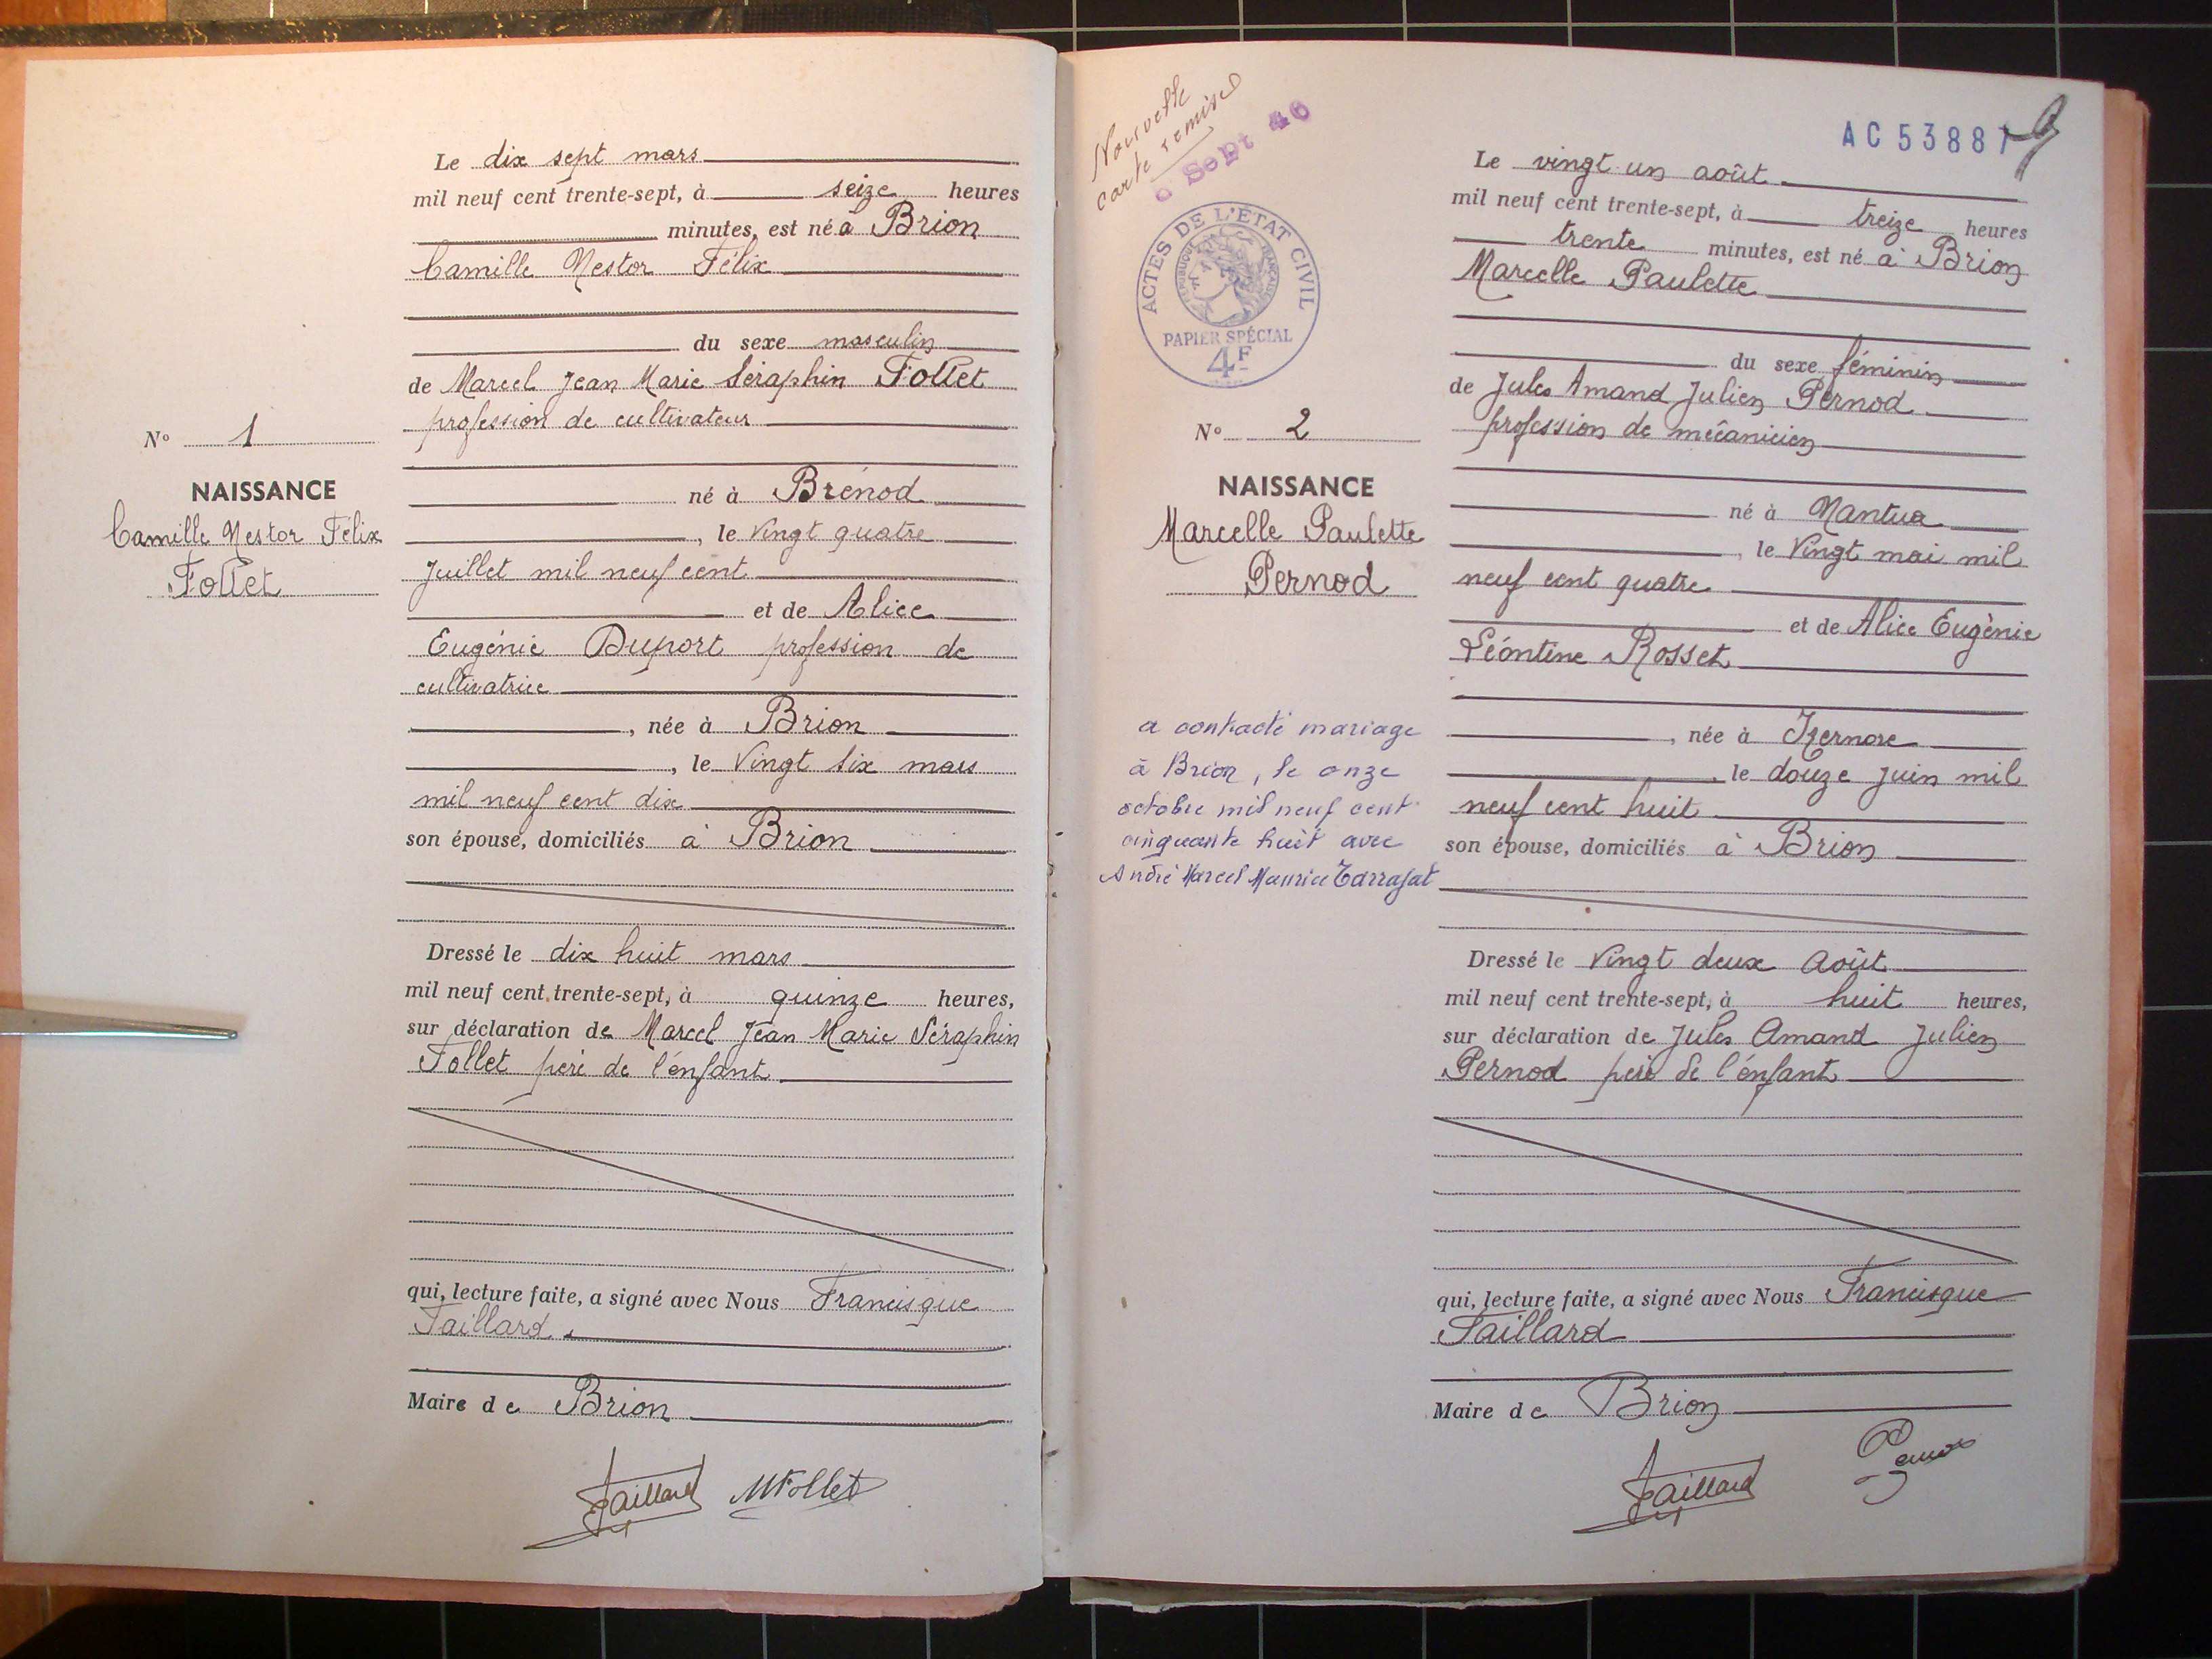 Le dix sept mars
mil neuf cent trente-sept, à seize heures
minutes, est né à Brion
Camille Nestor Félix
du sexe masculin
de Marcel Jean Marie Séraphin Follet
profession de cultivateur
N° 1
NAISSANCE
Camille Nestor Félix
Follet
né à Brénod
, le Vingt quatre
Juillet mil neuf cent
et de Alice
Eugénie Duport profession de
cultivatrice
, née à Brion
, le Vingt Six mars
mil neuf cent dix
son épouse, domiciliés à Brion
Dressé le dix huit mars
mil neuf cent trente-sept, à quinze heures,
sur déclaration de Marcel Jean Marie Séraphin
Follet père de l'enfant
qui, lecture faite, a signé avec Nous Francisque
Taillard
Maire de Brion
Taillard MFollet
Nouvelle
carte remise
Sept 46
AC 53887
ACTES DE L'ÉTAT CIVIL
RÉPUBLIQUE FRANÇAISE
PAPIER SPÉCIAL
4F
Le vingt un août
mil neuf cent trente-sept, à treize heures
trente minutes, est né à Brion
Marcelle Paulette
du sexe féminin
de Jules Amand Julien Pernod
profession de mécanicien
N° 2
NAISSANCE
Marcelle Paulette
Pernod
né à Nantua
, le Vingt mai mil
neuf cent quatre
et de Alice Eugénie
Léontine Rosset
, née à Izernore
, le douze Juin mil
neuf cent huit
son épouse, domiciliés à Brion
a contracté mariage
à Brion, le onze
octobre mil neuf cent
cinquante huit avec
André Marcel Maurice Tarrajat
Dressé le Vingt deux Août
mil neuf cent trente-sept, à huit heures,
sur déclaration de Jules Amand Julien
Pernod père de l'enfant
qui, lecture faite, a signé avec Nous Francisque
Taillard
Maire de Brion
Taillard Pernod